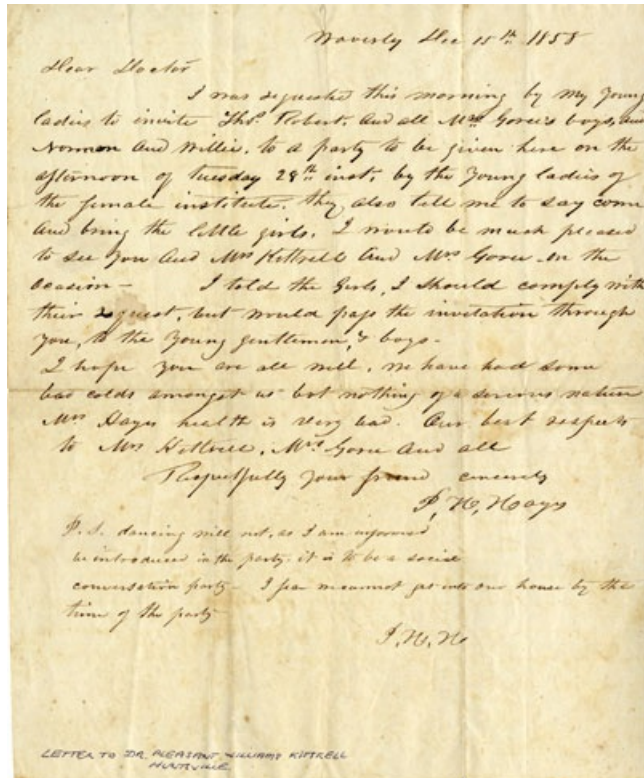 Waverly Dec 15th 1858
Dear Doctor
I was requested this morning by my Young
ladies to invite Thos. Robert, And all Mrs Goree's boys, and
Norman And Willie, to a party to be given here on the
afternoon of tuesday 28th inst, by the Young ladies of
the female institute. they also tell me to say come
And bring the little girls, I would be much pleased
to see you And Mrs Kittrell And Mrs Goree on the
ocasion — I told the Girls, I should comply with
their request, but would pass the invitation through
you, to the Young gentlemen, & boys -
I hope you are all well, we have had some
bad colds amongst us but nothing of a serious nature
Mrs Hayes health is very bad. Our best respects
to Mrs Kittrell, Mrs Goree And all
Respectfully your friend sincerely
P. H. Hays
P. S. dancing will not, as I am informed
be introduced in the party. it is to be a social
conversation party — I fear we cannot get into our house by the
time of the party -
P. H. H
LETTER TO DR. PLEASANT WILLIAMS KITTRELL
HUNTSVILLE